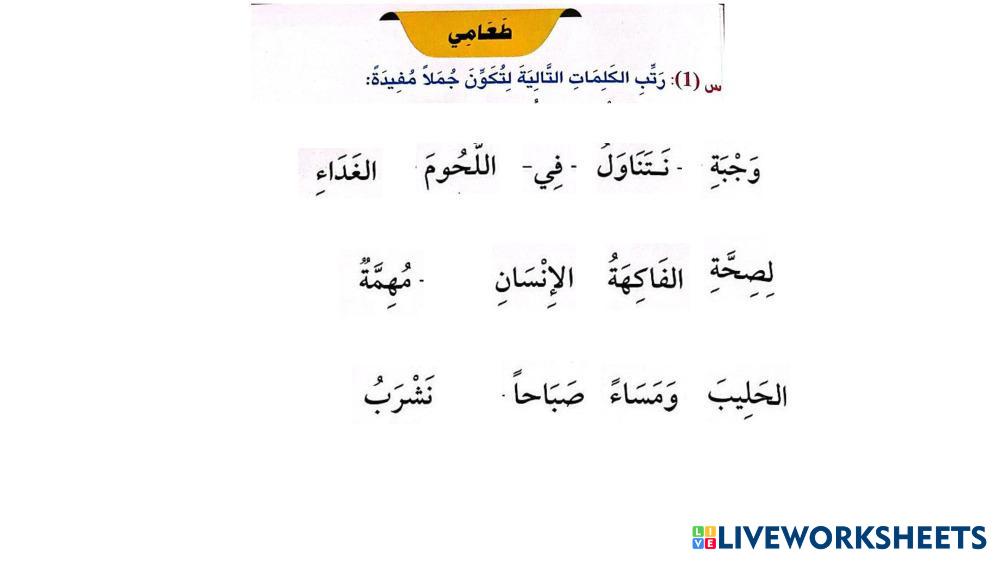 طَعَامِي
س (1): رَتِّبِ الكَلِمَاتِ التَّالِيَةَ لِتُكَوِّنَ جُمَلاً مُفِيدَةً:
وَجْبَةِ - نَتَنَاوَلُ - فِي - اللُّحُومَ الغَدَاءِ
لِصِحَّةِ الفَاكِهَةُ الإِنْسَانِ - مُهِمَّةٌ
الحَلِيبَ وَمَسَاءً صَبَاحاً نَشْرَبُ
LIVE LIVEWORKSHEETS